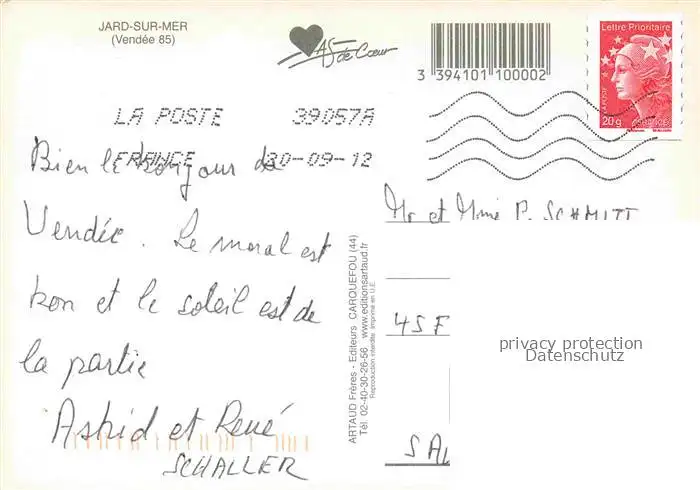 JARD-SUR-MER
(Vendée 85)
As de Cœur
3 394101 100002
Lettre Prioritaire
LA POSTE
20g
FRANCE
LA POSTE 39057A
FRANCE 30-09-12
Bien le bonjour de
Vendée. Le moral est
bon et le soleil est de
la partie
Astrid et René
SCHALLER
ARTAUD Frères - Editeurs CARQUEFOU (44)
Tél. 02-40-30-26-56 www.editionsartaud.fr
Reproduction interdite Imprimé en U.E.
Mr et Mme P. SCHMITT
45 F
SA
privacy protection
Datenschutz